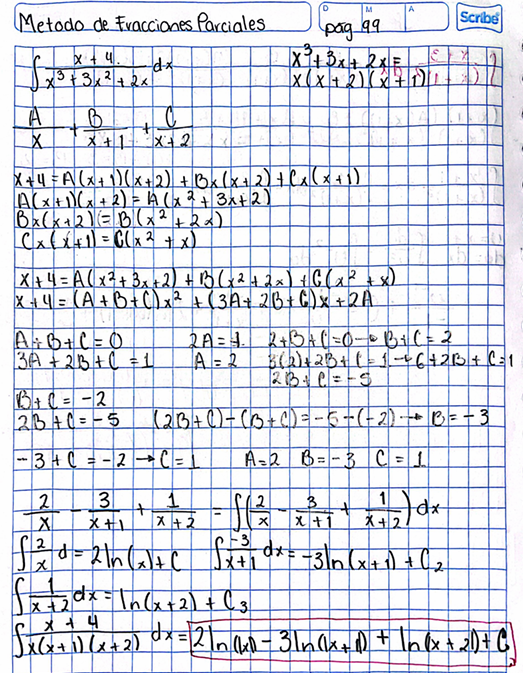 Metodo de Fracciones Parciales
D M A
pág 99
Scribe
∫ x+4 / x³+3x²+2x dx
x³+3x+2x=
x(x+2)(x+1)
A/x + B/x+1 + C/x+2
x+4=A(x+1)(x+2)+Bx(x+2)+Cx(x+1)
A(x+1)(x+2)=A(x²+3x+2)
Bx(x+2)=B(x²+2x)
Cx(x+1)=C(x²+x)
x+4=A(x²+3x+2)+B(x²+2x)+C(x²+x)
x+4=(A+B+C)x²+(3A+2B+C)x+2A
A+B+C=0 2A=4 2+B+C=0→B+C=2
3A+2B+C=1 A=2 3(2)+2B+C=1→6+2B+C=1
2B+C=-5
B+C=-2
2B+C=-5 (2B+C)-(B+C)=-5-(-2)→B=-3
-3+C=-2→C=1 A=2 B=-3 C=1
2/x - 3/x+1 + 1/x+2 = ∫(2/x - 3/x+1 + 1/x+2)dx
∫2/x d=2ln(x)+C ∫-3/x+1 dx=-3ln(x+1)+C₂
∫1/x+2 dx=ln(x+2)+C₃
∫ x+4 / x(x+1)(x+2) dx= 2ln(|x|)-3ln(|x+1|)+ln(|x+2|)+C